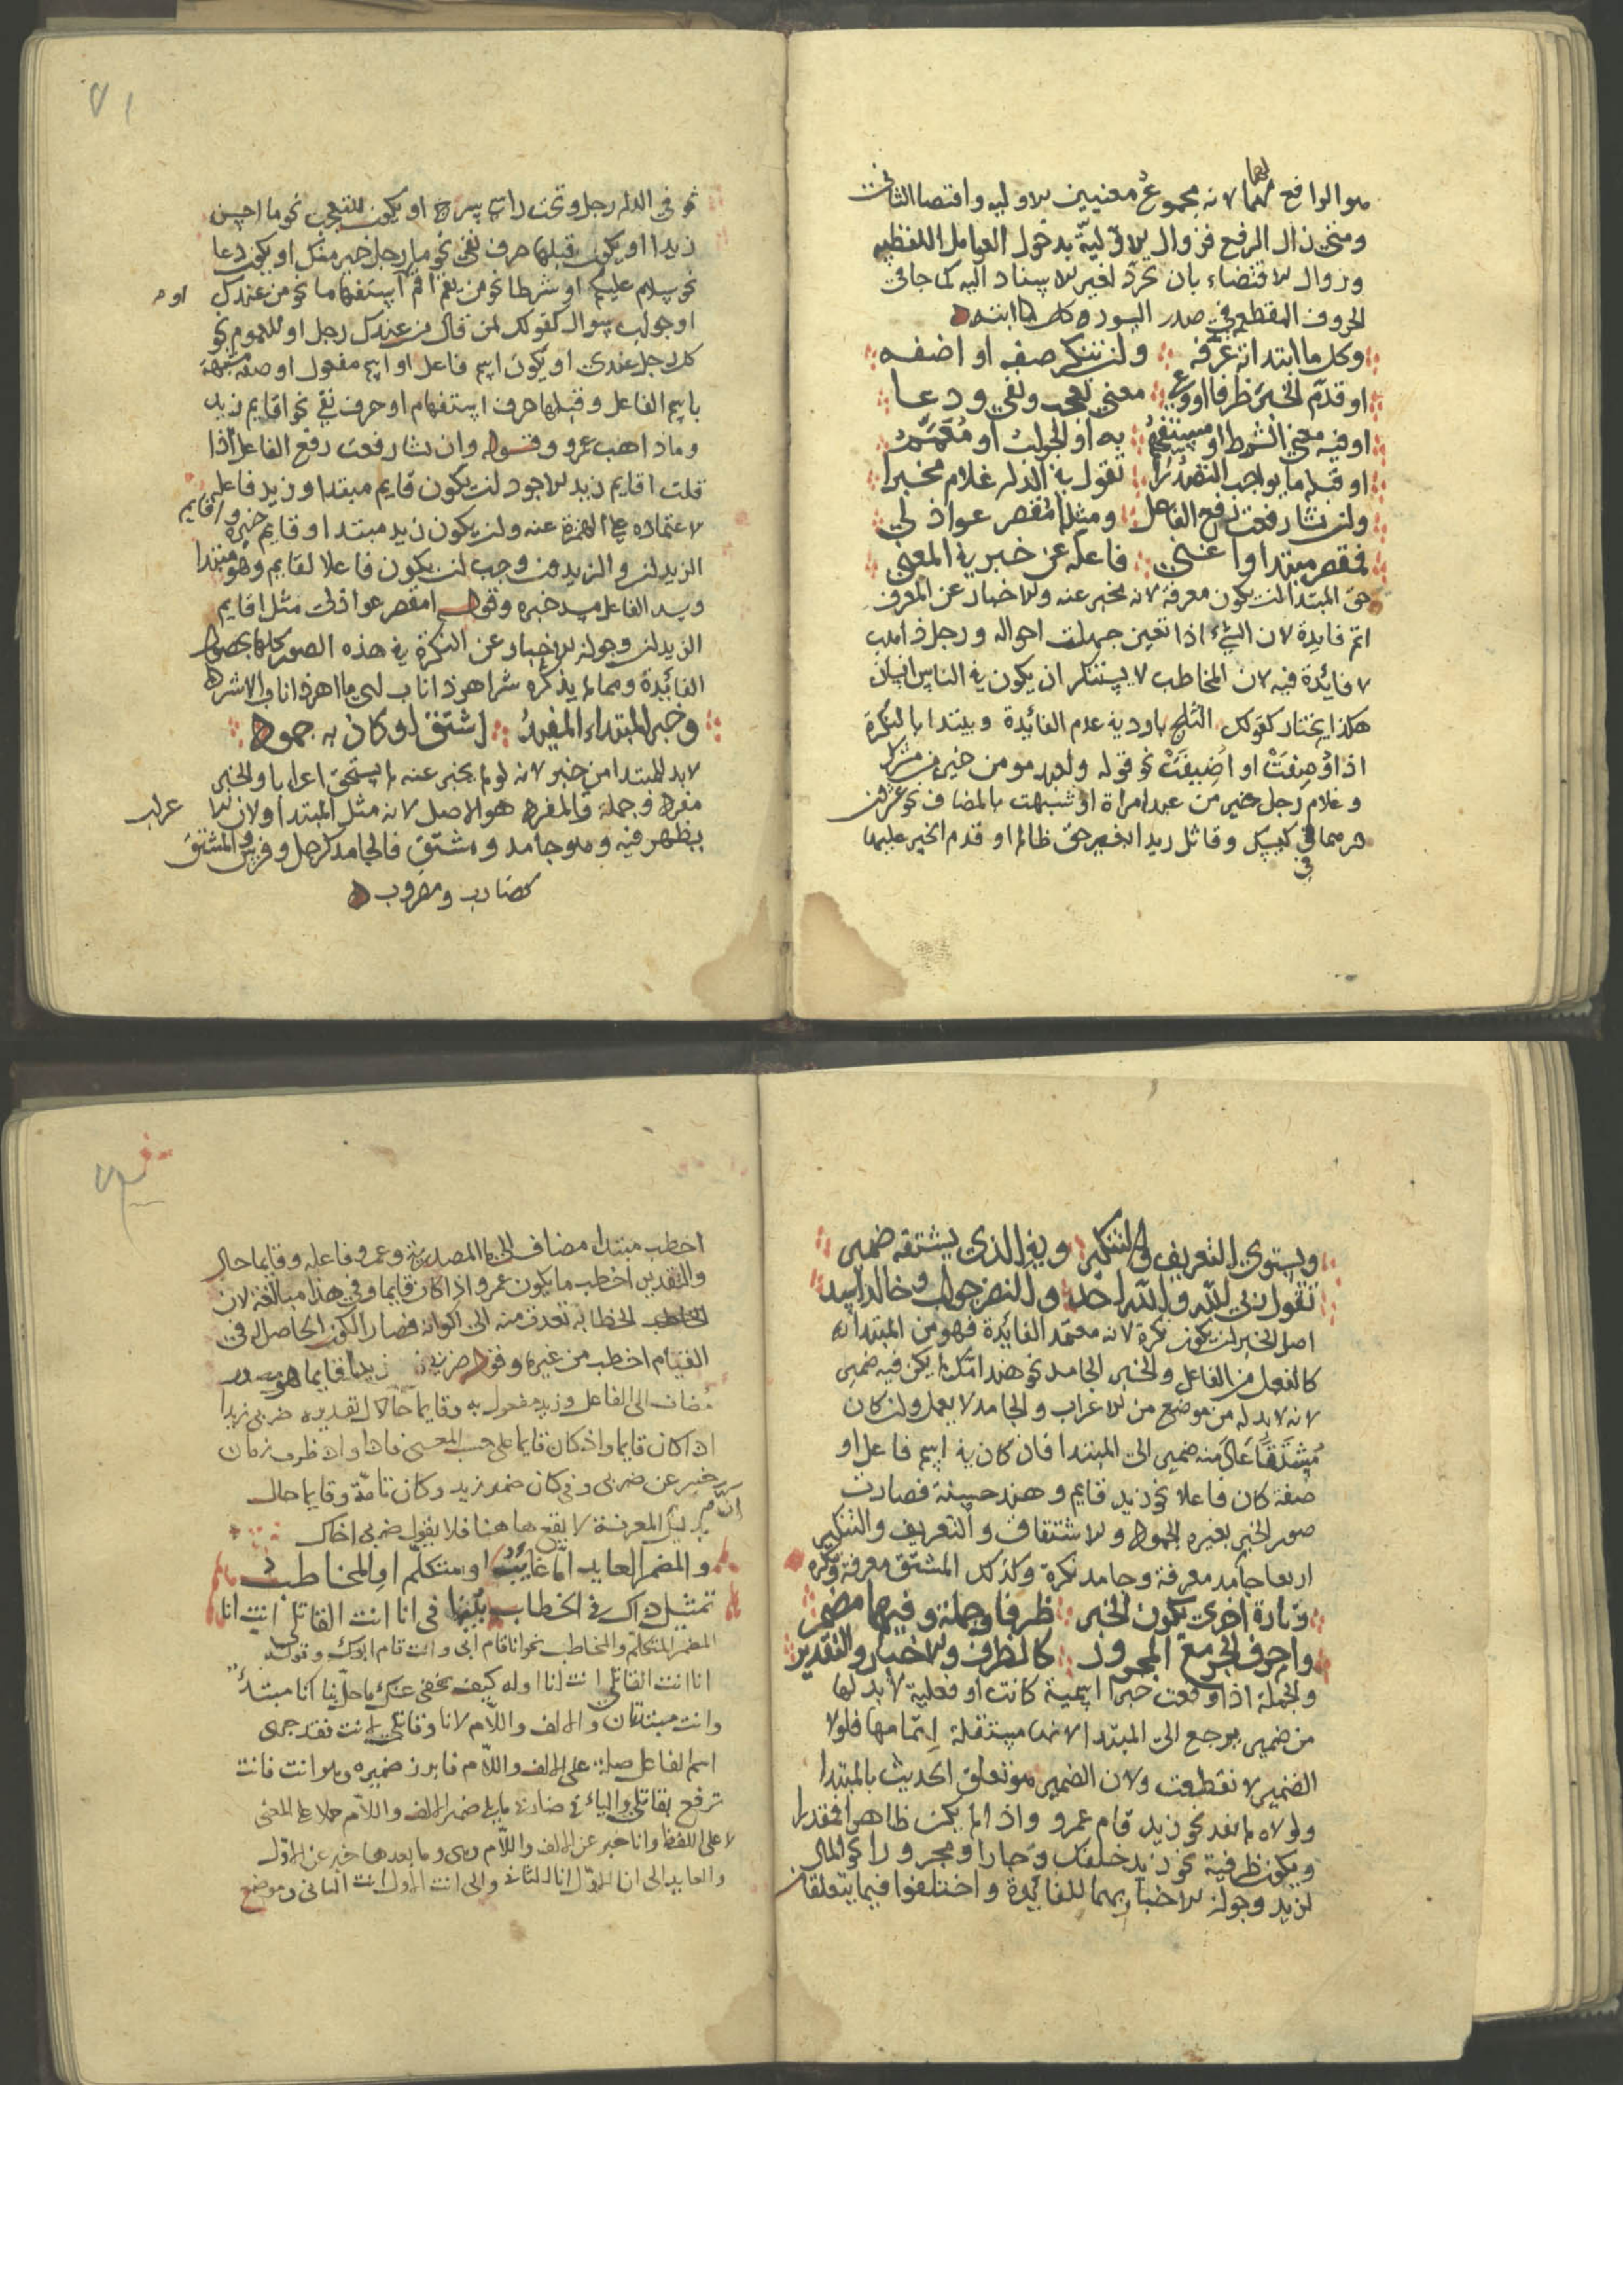 هو الرافع لهما لانه مجموع معنيين الاوليه واقتضا الثاني
ومتى زال الرفع فزوال الاوليّة بدخول العوامل اللفظيه
وزوال الاقتضاء بان تجرّد لغير الاسناد اليه كما جا في
الحروف المقطعه في صدر السور
وكل ما ابتداته عرّفه ولن تنكر صفه او اضفه
او قدّم الخبر ظرفا او وعى معنى تعجب ونفي ودعا
او فيه معنى الشرط او مستفهم به او الجواب او معمّم
او قبله ما يواجب التصدرا تقول في الدار غلام مخبرا
وان تشا رفعت رفع الفاعل ومثله امقصر عواذلي
فمقصر مبتدا واغنى فاعله عن خبر في المعنى
حق المبتدا ان يكون معرفة لانه مخبر عنه والاخبار عن المعرف
اتم فايدة لان الشيء اذا تعين جهلت احواله ورجل ذاهب
لا فائدة فيه لان المخاطب لا يستنكر ان يكون في الناس انسان
هكذا يختار كقولك الثلج بارد في عدم الفائدة ويبتدا بالنكرة
اذا وُصِفَتْ او اُضِيفَتْ نحو قوله ولعبد مومن خير من مشرك
وغلام رجل خير من عبد امراة او شبهت بالمضاف نحو عشرون
درهما في كيسك وقاتل زيدا بغير حق ظالم او قدم الخبر عليها
في
٧١
نحو في الدار رجل وتحت راسي سرج او يكون للتعجب نحو ما احسن
زيدا او يكون قبلها حرف نفي نحو ما رجل خير منك او يكون دعا
نحو سلام عليكم او شرطا نحو من يقم اقم او استفهاما نحو من عندك
او جواب سوال كقولك لمن قال من عندك رجل او للعموم نحو
كل رجل عندي او يكون اسم فاعل او اسم مفعول او صفه مشبهة
باسم الفاعل وقبلها حرف استفهام او حرف نفي نحو اقايم زيد
وما ذاهب عمرو وقوله وان تشا رفعت رفع الفاعل اذا
قلت اقايم زيد الاجود ان يكون قايم مبتدا وزيد فاعله
لاعتماده على الهمزة عنه وان يكون زيد مبتدا وقايم خبره واقايم
الزيدان والزيدون وجب ان يكون فاعلا لقايم وهو مبتدا
ويسد الفاعل مسد خبره وقوله امقصر عواذلي مثل اقايم
الزيدان وجواز الاخبار عن النكرة في هذه الصور كلها بحصول
الفائدة ومما لم يذكره شر اهر ذا ناب اي ما اهر ذا ناب الا شر
وخبر المبتداء المفيد اشتق او كان به جمود
لا بد للمبتدا من خبر لانه لو لم يخبر عنه لم يستحق اعرابا والخبر
مفرد وجملة فالمفرد هو الاصل لانه مثل المبتدا ولان الاعراب
يظهر فيه وهو جامد ومشتق فالجامد كرجل وفرس والمشتق
كضارب ومضروب
ويستوي التعريف والتنكير وفي الذي يشتقه ضمير
تقول ربي الله والله احد والنضر جواب وخالد اسد
اصل الخبر ان يكون نكرة لانه معتمد الفائدة فهو من المبتدا
كالفعل من الفاعل والخبر الجامد نحو هند امك لم يكن فيه ضمير
لانه لا بد له من موضع من الاعراب والجامد لا يعمل وان كان
مُشتَقّاً عاد منه ضمير الى المبتدا فان كان في اسم فاعل او
صفة كان فاعلا نحو زيد قايم وهند حسنة فصارت
صور الخبر بغيره الجمود والاشتقاق والتعريف والتنكير
اربعا جامد معرفة وجامد نكرة وكذلك المشتق معرفة ونكره
وتارة اخرى يكون الخبر ظرفا وجملة وفيهما مضمر
واحرف الجر مع المجرور كالظرف والاخبار والتقدير
والجملة اذا وقعت خبرا اسمية كانت او فعلية لا بد لها
من ضمير يرجع الى المبتدا لانها مستقلة اتمامها فلولا
الضمير لانقطعت ولان الضمير هو تعلق الحديث بالمبتدا
ولولاه لم يفد نحو زيد قام عمرو واذا لم يكن ظاهرا فمقدرا
ويكون ظرفية نحو زيد خلفك وجارا ومجرورا نحو المال
لزيد وجواز الاخبار بهما للفائدة واختلفوا فيما يتعلقان
اخطب مبتدا مضاف الى ما المصدرية وعمرو فاعله وقايما حال
والتقدير اخطب ما يكون عمرو اذا كان قايما وفي هذا مبالغة لان
الخطابة تعدت منه الى اكوانه فصار الكون الحاصل في
القيام اخطب من غيره وقوله ضربي زيدا قايما هو مصدر
مضاف الى الفاعل وزيد مفعول به وقايما حالا تقديره ضربي زيدا
اذا كان قايما واذ كان قايما على حسب المعنى فاذا واذ ظرف زمان
خبر عن ضربي وفي كان ضمير زيد وكان تامّة وقايما حال
بدليل ان المعرفة لا يقع هاهنا فلا يقول ضربي اخاك
والمضمر العايد اما غايبُ او متكلّم او المخاطب
تمثيل ذاك في الخطاب بيّنا في انا انت القاتلي انت انا
المضمر المتكلم والمخاطب نحو انا قام ابي وانت قام ابوك وقوله
انا انت القاتلي انت انا اوله كيف يخفى عنك ما حلّ بنا انا مبتدأ
وانت مبتدان والالف واللام لانا وقاتلي لانت فقد جرى
اسم الفاعل صلة على الالف واللام فابرز ضميره وهو انت فانت
ترفع بقاتلي والياء في ضاربي ضمير الالف واللام حملا على المعنى
لا على اللفظ وانا خبر عن الالف واللام وهي وما بعدها خبر عن الاول
والعايد الى انا الاول انا الثاني والى انت الاول انت الثاني وموضع